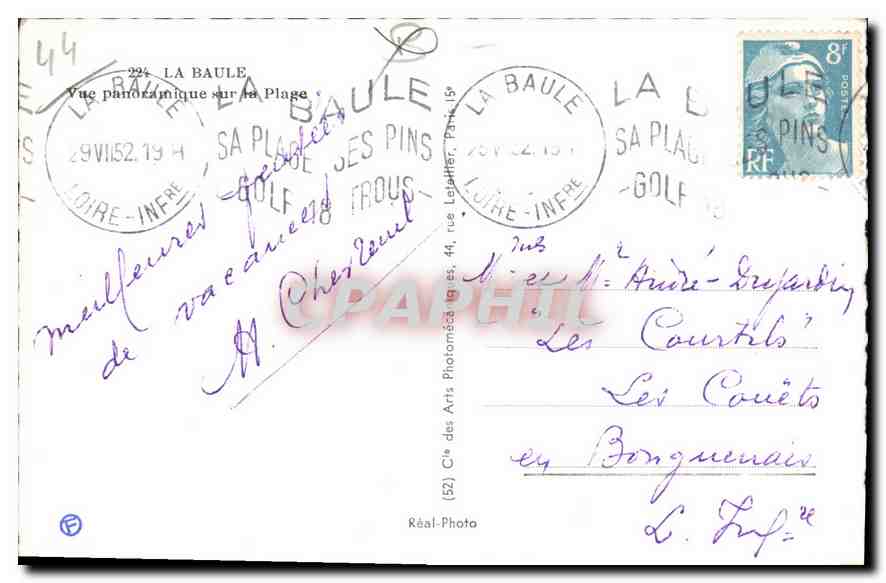 44
224 LA BAULE
Vue panoramique sur la Plage
LA BAULE
29 VII 52. 19 H
LOIRE-INFRE
LA BAULE
SA PLAGE SES PINS
-GOLF 18 TROUS-
LA BAULE
LOIRE-INFRE
LA BAULE
SA PLAGE
-GOLF 18
8F
POSTES
RF
Meilleures pensées
de vacances
M.
CPAPHIL
(52) Cie des Arts Photomécaniques, 44, rue Letellier, Paris-15e
M et Mr André-Dujardin
"Les Courtils"
Les Couëts
en Bouguenais
L. Infre
F
Réal-Photo